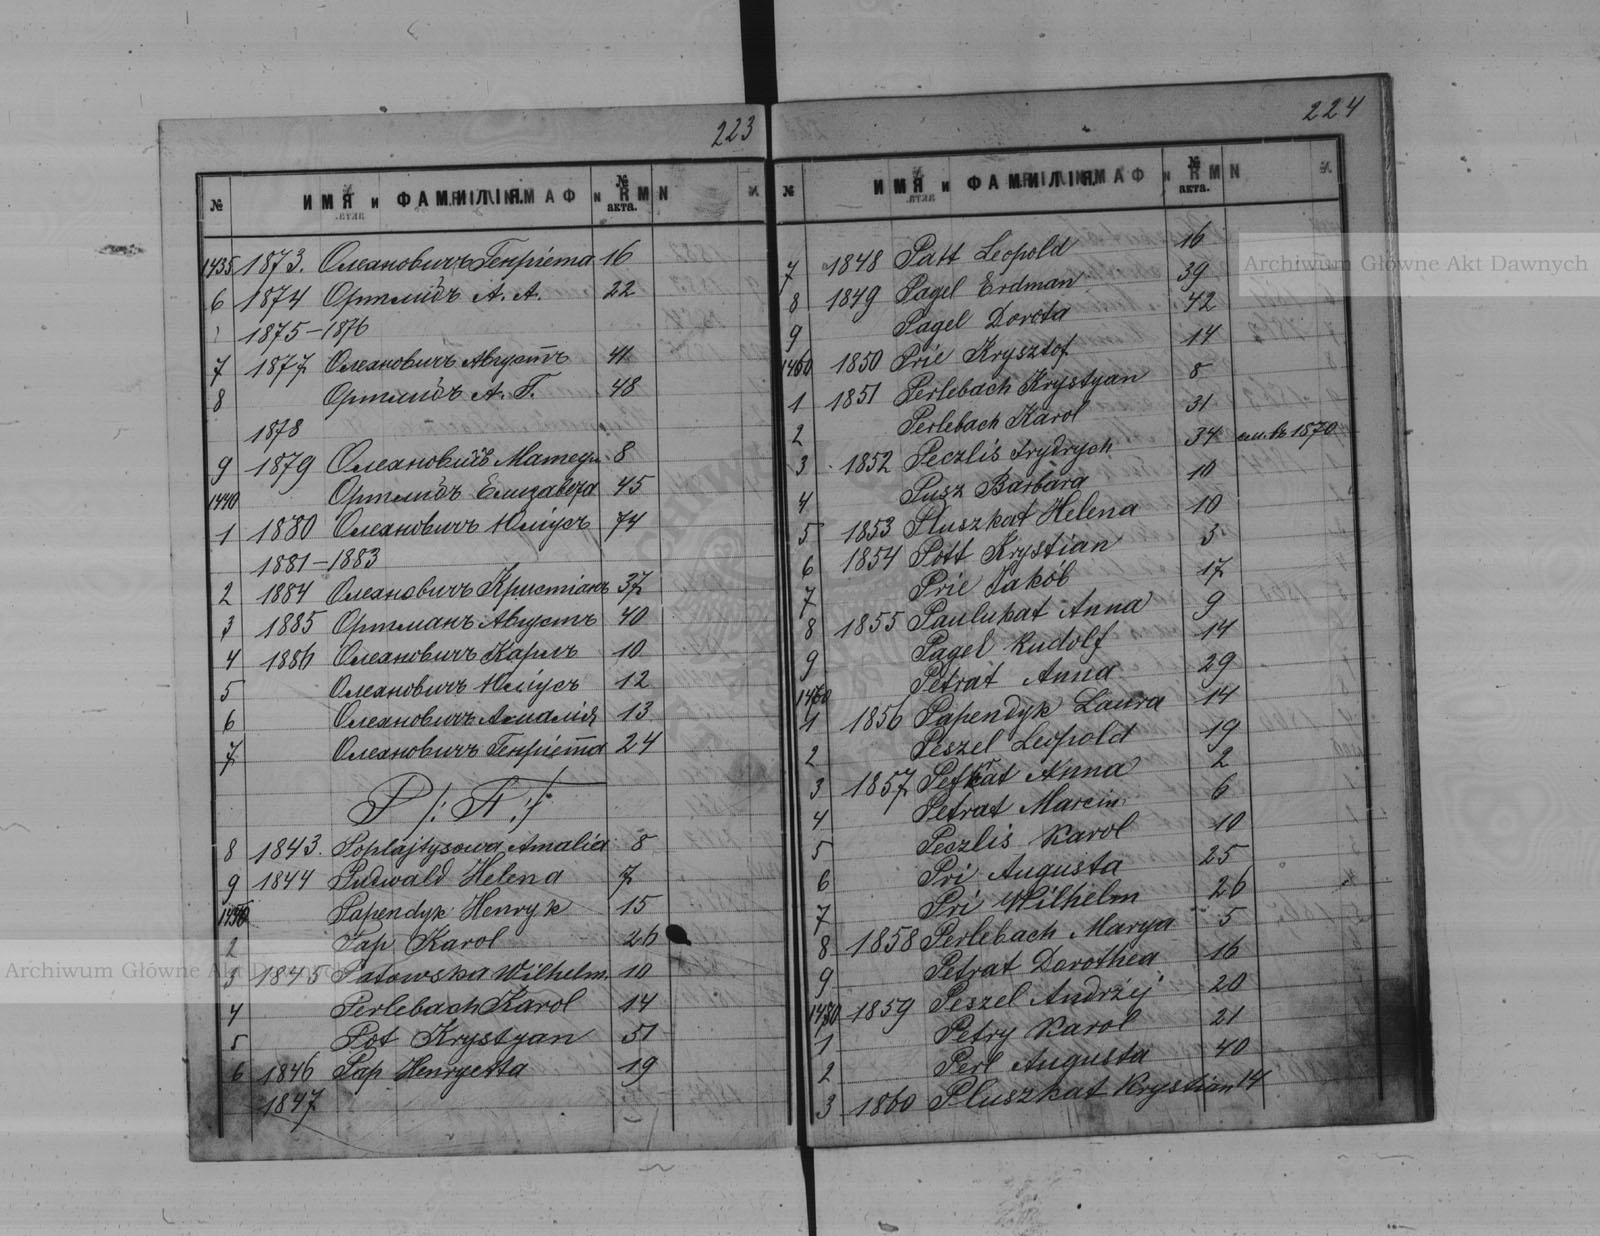 223
№ ИМЯ и ФАМИЛІЯ. № акта.
1435 1873. Олехновичъ Генріета 16
6 1874 Ортлибъ А. А. 22
1875–1876
7 1877 Олехновичъ Августъ 41
8 Ортлибъ А. Г. 48
1878
9 1879 Олехновичъ 8
1440 Ортлибъ Елизавета 45
1 1880 Олехновичъ Юліусъ 74
1881–1883
2 1884 Олехновичъ Христіанъ 37
3 1885 Ортманъ Августъ 40
4 1886 Олехновичъ Карлъ 10
5 Олехновичъ Юліусъ 12
6 Олехновичъ Амалія 13
7 Олехновичъ Генріетта 24
P /: П :/
8 1843. Poplajtysowa Amalia 8
9 1844 Pudwald Helena 7
1450 Papendyk Henryk 15
2 Pap Karol 26
3 1845 Patowska Wilhelm. 10
4 Perlebach Karol 14
5 Pot Krystyan 51
6 1846 Pap Henryetta 19
1847
224
№ ИМЯ и ФАМИЛІЯ. № акта.
7 1848 Patt Leopold 16
8 1849 Pagel Erdman 39
9 Pagel Dorota 42
1460 1850 Prie Krysztof 14
1 1851 Perlebach Krystyan 8
2 Perlebach Karol 31
3 1852 Peczlis Frydrych 34 см. въ 1870
4 Pusz Barbara 10
5 1853 Pluszkat Helena 10
6 1854 Pott Krystian 5
7 Prie Jakób 17
8 1855 Paulukat Anna 9
9 Pagel Rudolf 14
1470 Petrat Anna 29
1 1856 Papendyk Laura 14
2 Peszel Leopold 19
3 1857 Petrat Anna 2
4 Petrat Marcin 6
5 Peczlis Karol 10
6 Pri Augusta 25
7 Pri Wilhelm 26
8 1858 Perlebach Marya 5
9 Petrat Dorothea 16
1480 1859 Peszel Andrzej 20
1 Petry Karol 21
2 Perl Augusta 40
3 1860 Pluszkat Krystian 14
Archiwum Główne Akt Dawnych
Archiwum Główne Akt Dawnych